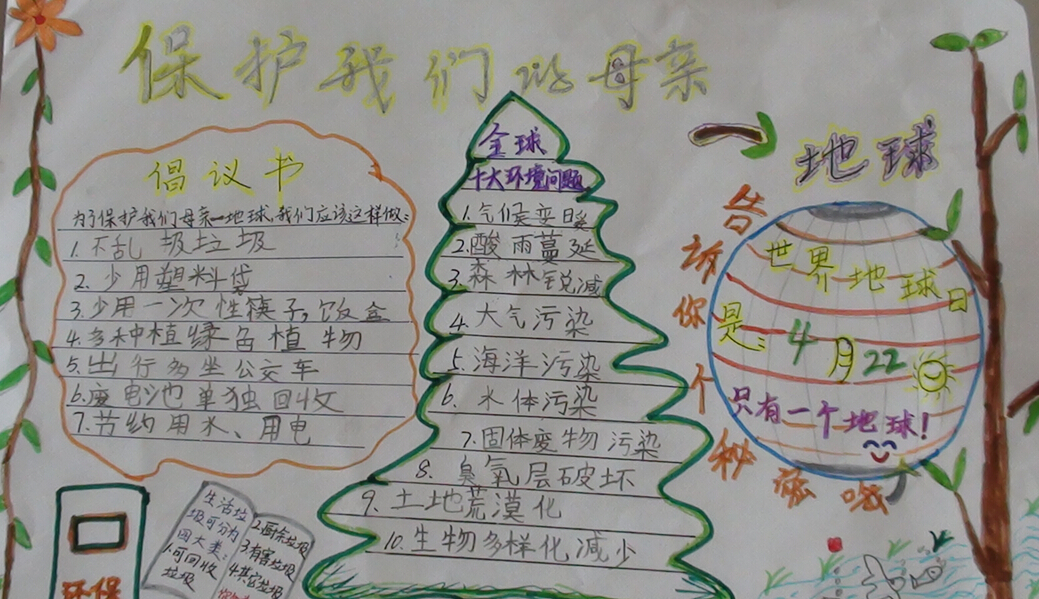 保护我们的母亲
一地球
倡议书
为了保护我们母亲一地球,我们应该这样做:
1.不乱圾垃圾
2.少用塑料袋
3.少用一次性筷子,饭盒
4.多种植绿色植物
5.出行多坐公交车
6.废电池单独回收
7.节约用水、用电
全球
十大环境问题
1.气候变暖
2.酸雨蔓延
3.森林锐减
4.大气污染
5.海洋污染
6.水体污染
7.固体废物污染
8.臭氧层破坏
9.土地荒漠化
10.生物多样化减少
告诉你个秘密哦
世界地球日
是:4月22
只有一个地球!
环保
生活垃
圾可分为
四大类:
1.可回收
垃圾
2.厨余垃圾
3.有害垃圾
4.其它垃圾